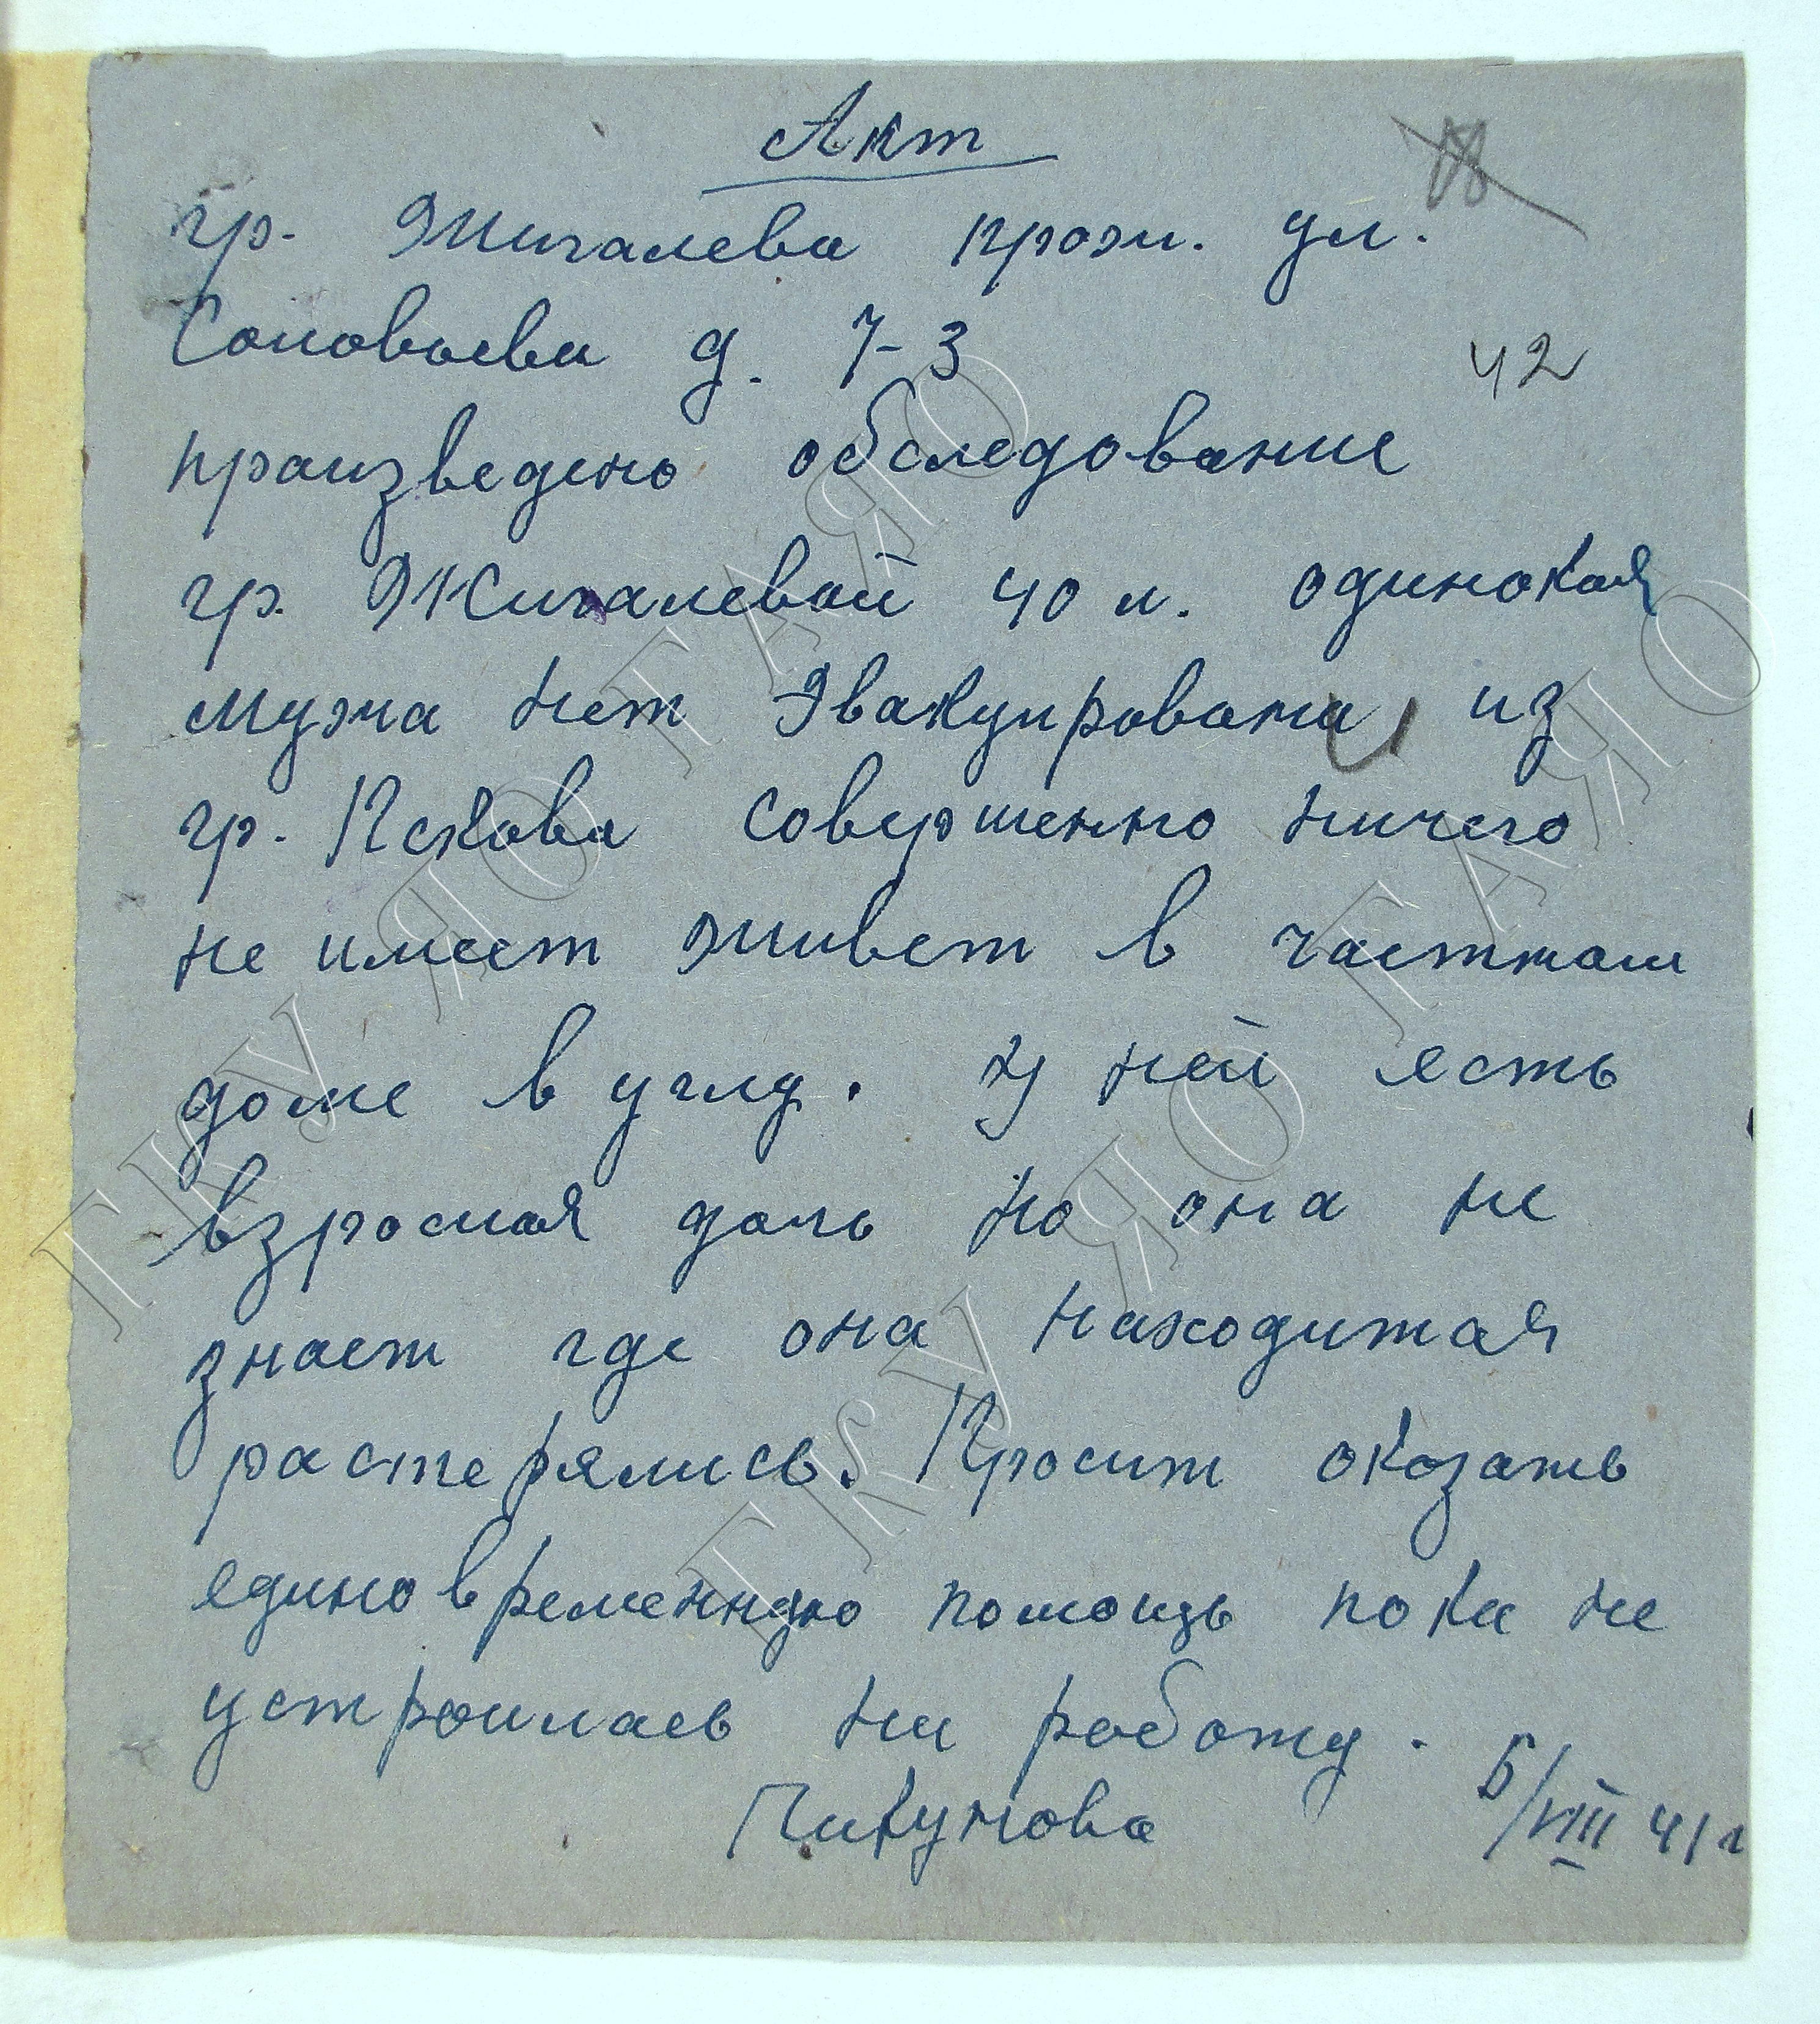 Акт
гр. Жигалева прож. ул.
Соловьева д. 7-3
42
произведено обследование
гр. Жигалевой 40 л. одинокая
мужа нет Эвакуирована, из
гр. Пскова совершенно ничего
не имеет живет в частном
доме в углу. У ней есть
взрослая дочь но она не
знает где она находится
растерялись. Просит оказать
единовременную помощь пока не
устроилась на работу.
Пикунова 5/VIII 41 г
ГКУ ЯО ГАЯО
ГКУ ЯО ГАЯО